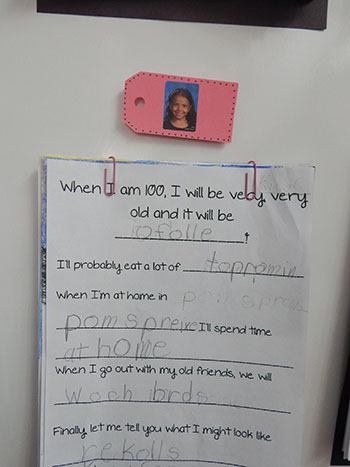 When I am 100, I will be very, very
old and it will be
ofolle!
I'll probably eat a lot of toppramin
When I'm at home in
pom spreme I'll spend time
at home
When I go out with my old friends, we will
woch brds
Finally, let me tell you what I might look like
rekolls